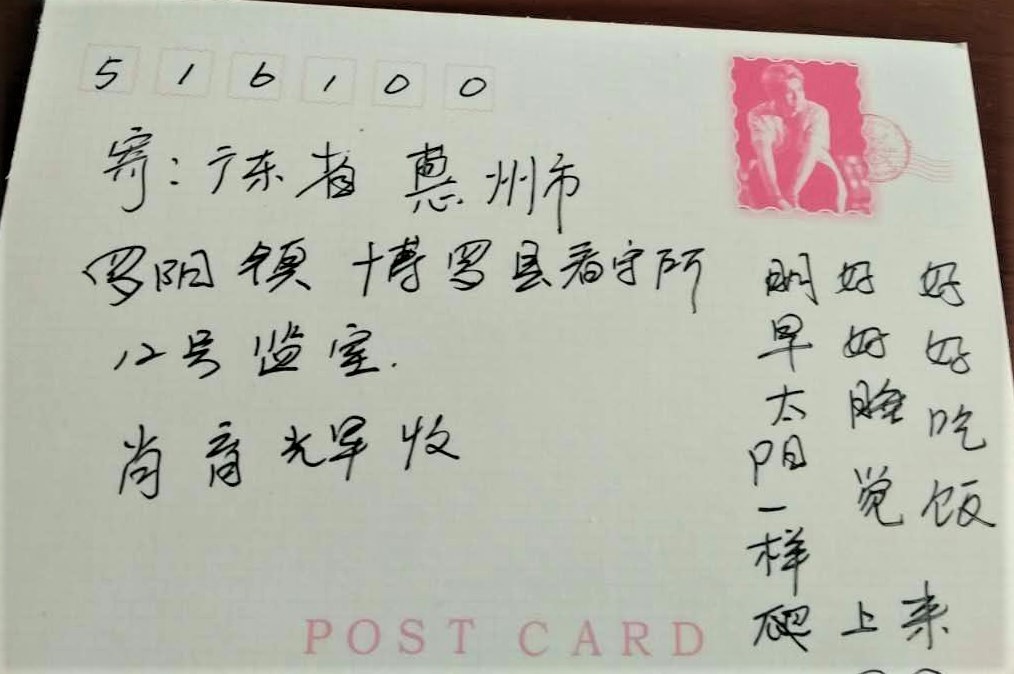 516100
寄:广东省惠州市
罗阳镇博罗县看守所
12号监室.
肖育辉收
好好吃饭
好好睡觉
明早太阳一样爬上来
POST CARD